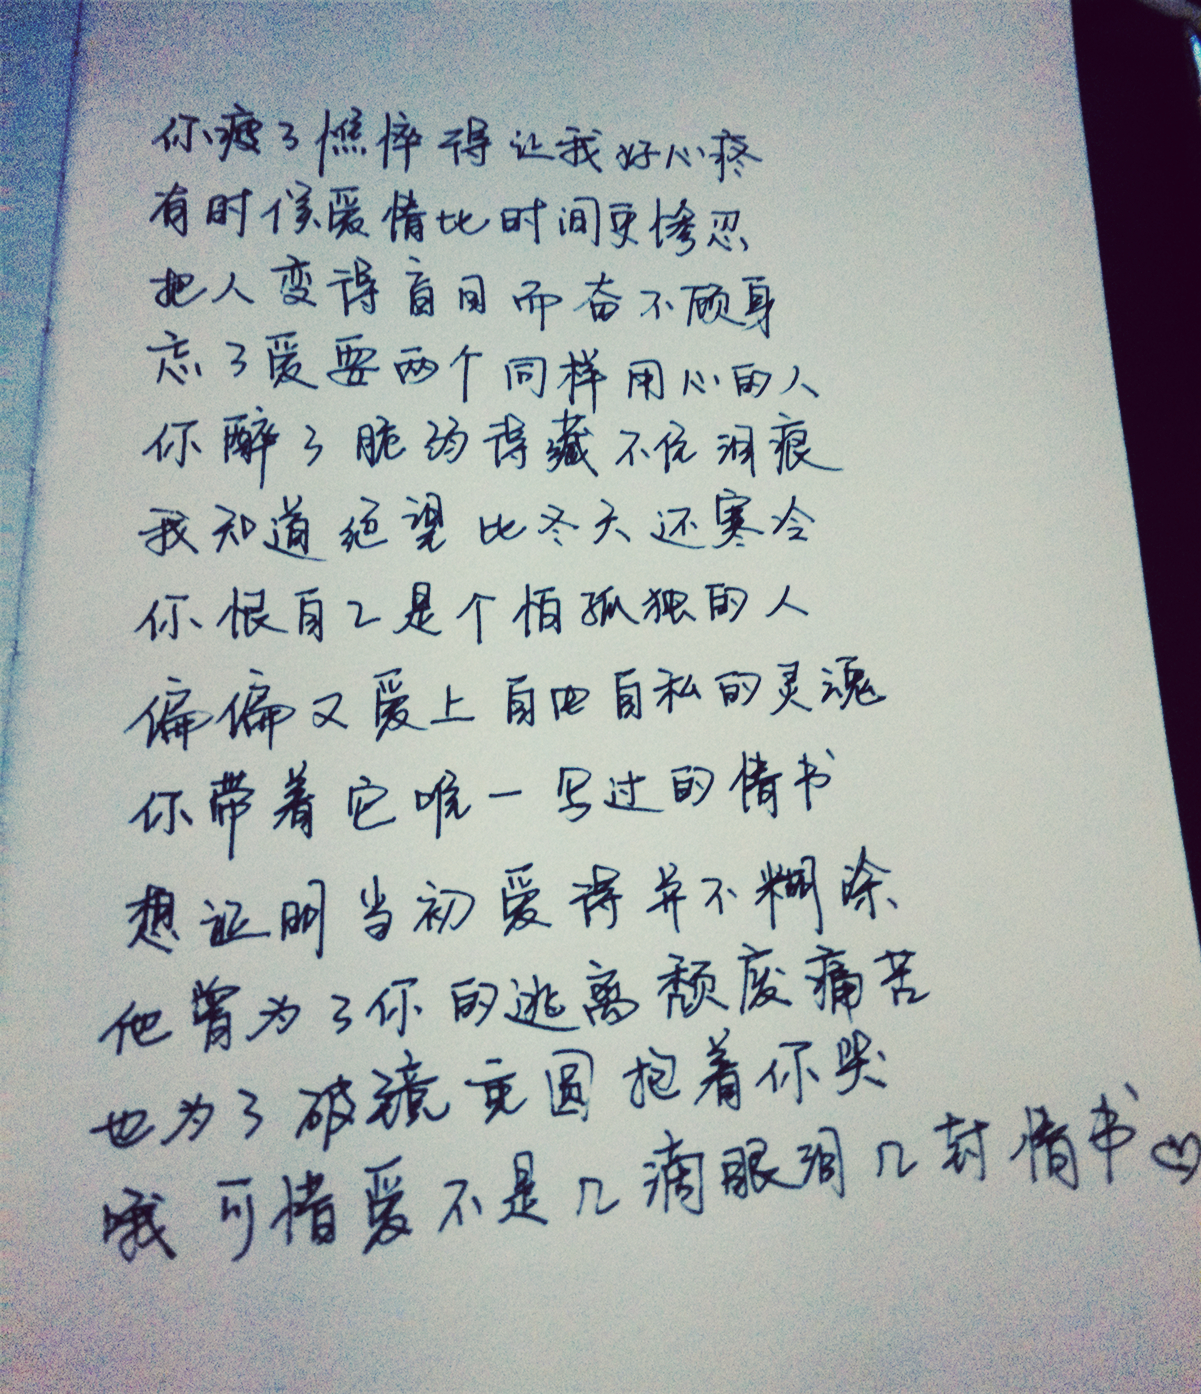 你疲了憔悴得让我好心疼
有时候爱情比时间更惨忍
把人变得盲目而奋不顾身
忘了爱要两个同样用心的人
你醉了脆弱得藏不住泪痕
我知道绝望比冬天还寒冷
你恨自己是个怕孤独的人
偏偏又爱上自由自私的灵魂
你带着它唯一写过的情书
想证明当初爱得并不糊涂
他曾为了你的逃离颓废痛苦
也为了破镜重圆抱着你哭
哦可惜爱不是几滴眼泪几封情书♡